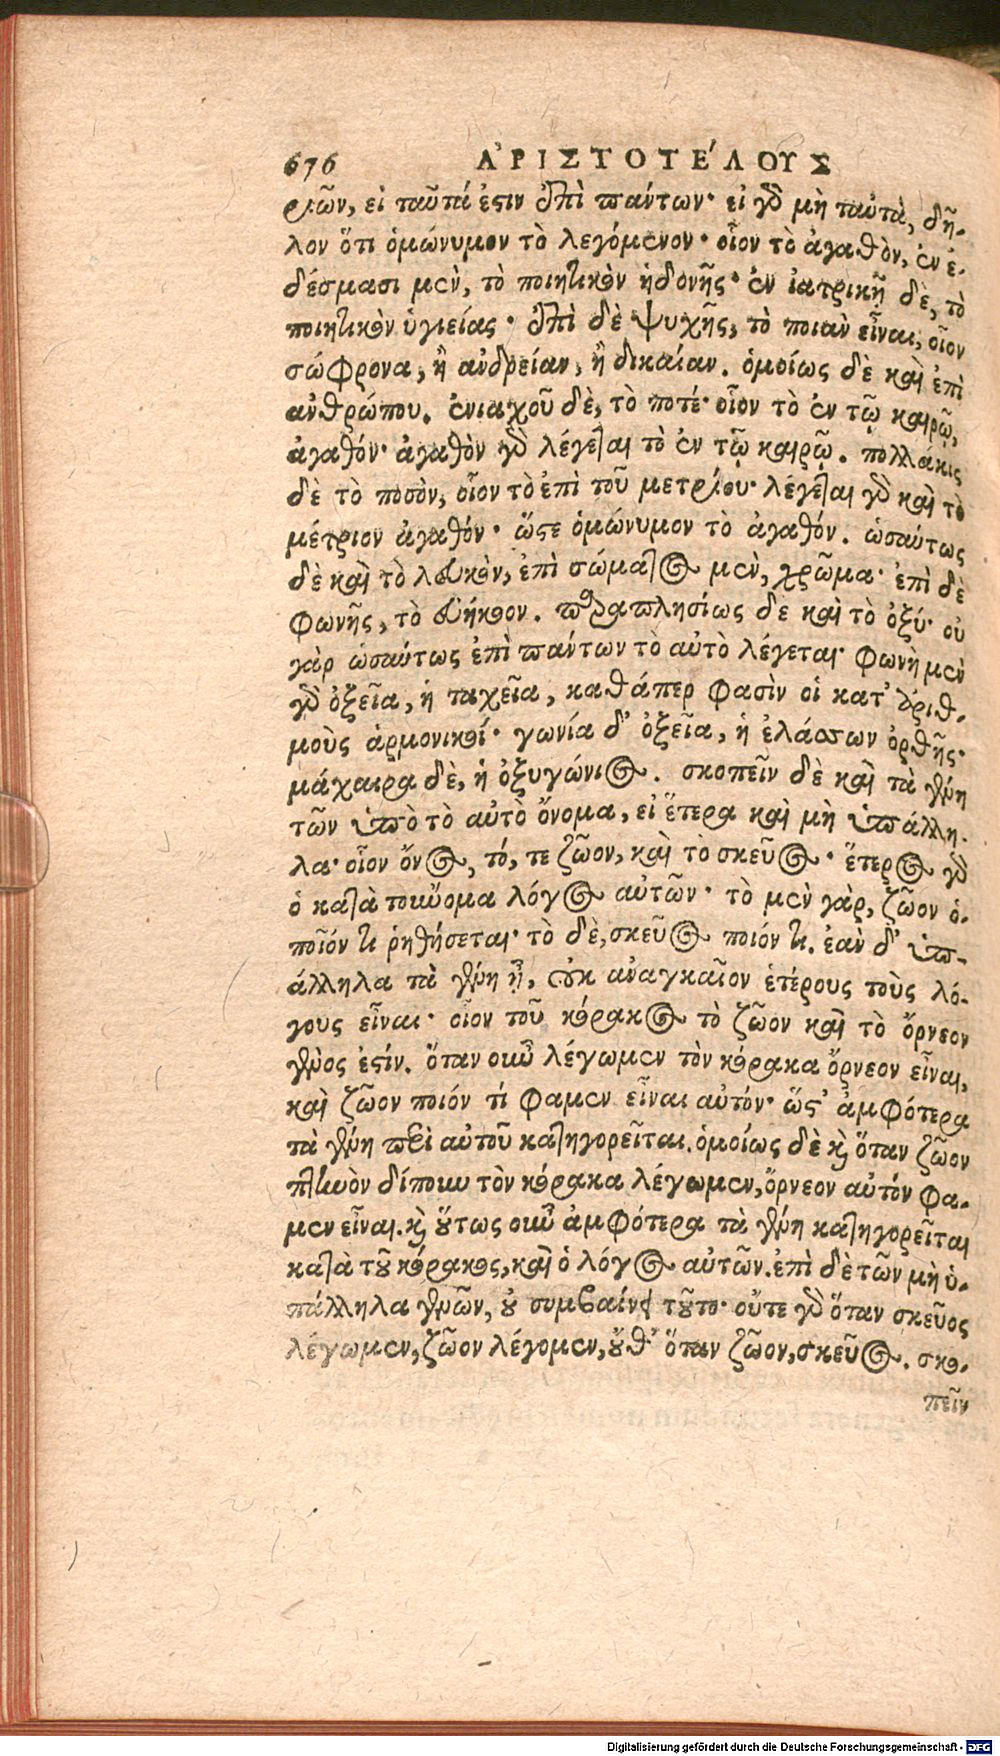 676 ἈΡΙΣΤΟΤΈΛΟΥΣ
ριῶν, εἰ ταῦτά ἐστιν ἐπὶ πάντων· εἰ γὰρ μὴ ταὐτὰ, δῆ-
λον ὅτι ὁμώνυμον τὸ λεγόμενον· οἷον τὸ ἀγαθὸν, ἐν ἐ-
δέσμασι μὲν, τὸ ποιητικὸν ἡδονῆς· ἐν ἰατρικῇ δὲ, τὸ
ποιητικὸν ὑγιείας· ἐπὶ δὲ ψυχῆς, τὸ ποιὰν εἶναι, οἷον
σώφρονα, ἢ ἀνδρείαν, ἢ δικαίαν. ὁμοίως δὲ καὶ ἐπὶ
ἀνθρώπου. ἐνιαχοῦ δὲ, τὸ ποτέ· οἷον τὸ ἐν τῷ καιρῷ,
ἀγαθόν· ἀγαθὸν γὰρ λέγεται τὸ ἐν τῷ καιρῷ. πολλάκις
δὲ τὸ ποσὸν, οἷον τὸ ἐπὶ τοῦ μετρίου· λέγεται γὰρ καὶ τὸ
μέτριον ἀγαθόν· ὥστε ὁμώνυμον τὸ ἀγαθόν. ὡσαύτως
δὲ καὶ τὸ λευκὸν, ἐπὶ σώματος μὲν, χρῶμα· ἐπὶ δὲ
φωνῆς, τὸ εὐήκοον. παραπλησίως δε καὶ τὸ ὀξύ· οὐ
γὰρ ὡσαύτως ἐπὶ πάντων τὸ αὐτὸ λέγεται· φωνὴ μὲν
γὰρ ὀξεῖα, ἡ ταχεῖα, καθάπερ φασὶν οἱ κατ' ἀριθ-
μοὺς ἁρμονικοί· γωνία δ' ὀξεῖα, ἡ ἐλάσσων ὀρθῆς·
μάχαιρα δὲ, ἡ ὀξυγώνιος. σκοπεῖν δὲ καὶ τὰ γένη
τῶν ὑπὸ τὸ αὐτὸ ὄνομα, εἰ ἕτερα καὶ μὴ ὑπάλλη-
λα· οἷον ὄνος, τό, τε ζῶον, καὶ τὸ σκεῦος· ἕτερος γὰρ
ὁ κατὰ τοὔνομα λόγος αὐτῶν· τὸ μὲν γὰρ, ζῶον ὁ-
ποῖόν τι ῥηθήσεται· τὸ δὲ, σκεῦος ποιόν τι. ἐὰν δ' ὑπ-
άλληλα τὰ γένη ᾖ, οὐκ ἀναγκαῖον ἑτέρους τοὺς λό-
γους εἶναι· οἷον τοῦ κόρακος τὸ ζῶον καὶ τὸ ὄρνεον
γένος ἐστίν. ὅταν οὖν λέγωμεν τὸν κόρακα ὄρνεον εἶναι,
καὶ ζῶον ποιόν τί φαμεν εἶναι αὐτόν· ὥστ' ἀμφότερα
τὰ γένη περὶ αὐτοῦ κατηγορεῖται. ὁμοίως δὲ καὶ ὅταν ζῶον
πτηνὸν δίπουν τὸν κόρακα λέγωμεν, ὄρνεον αὐτόν φα-
μεν εἶναι. καὶ οὕτως οὖν ἀμφότερα τὰ γένη κατηγορεῖται
κατὰ τοῦ κόρακος, καὶ ὁ λόγος αὐτῶν. ἐπὶ δὲ τῶν μὴ ὑ-
πάλληλα γενῶν, οὐ συμβαίνει τοῦτο· οὔτε γὰρ ὅταν σκεῦος
λέγωμεν, ζῶον λέγομεν, οὔθ' ὅταν ζῶον, σκεῦος. σκο-
πεῖν
Digitalisierung gefördert durch die Deutsche Forschungsgemeinschaft - DFG